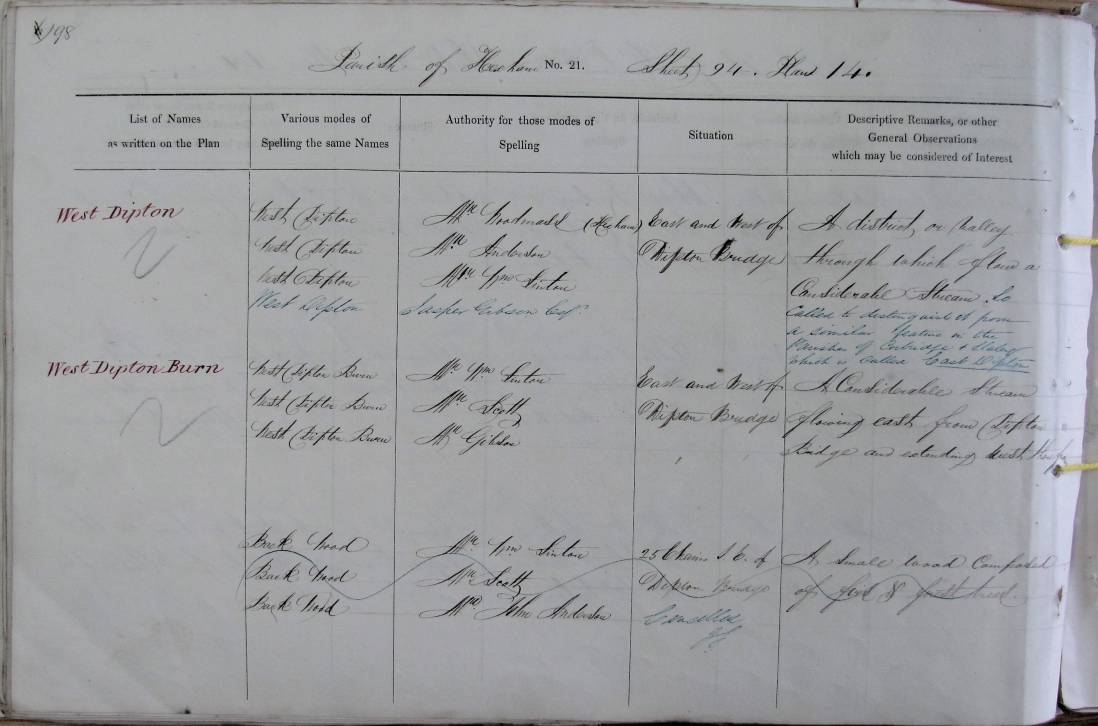 198
Parish of Hexham No. 21. Sheet 94. Plan 14.
List of Names
as written on the Plan
Various modes of
Spelling the same Names
Authority for those modes of
Spelling
Situation
Descriptive Remarks, or other
General Observations
which may be considered of Interest
West Dipton
West Dipton
West Dipton
West Dipton
West Dipton
Mr. Woodmass (Hexham)
Mr. Anderson
Mr. Wm. Sinton
Jasper Gibson Esqr.
East and West of
Dipton Bridge
A district, or Valley
through which flows a
Considerable Stream. So
Called to distinguish it from
a similar feature in the
Parishes of Corbridge &
which is called East Dipton
West Dipton Burn
West Dipton Burn
West Dipton Burn
West Dipton Burn
Mr. Wm. Sinton
Mr. Scott
Mr. Gibson
East and West of
Dipton Bridge
A Considerable Stream
flowing east from Dipton
Bridge and extending West
Back Wood
Back Wood
Back Wood
Mr. Wm. Sinton
Mr. Scott
Mr. John Anderson
25 Chains S.E. of
Dipton Bridge
Cancelled
A small wood Composed
of fir &